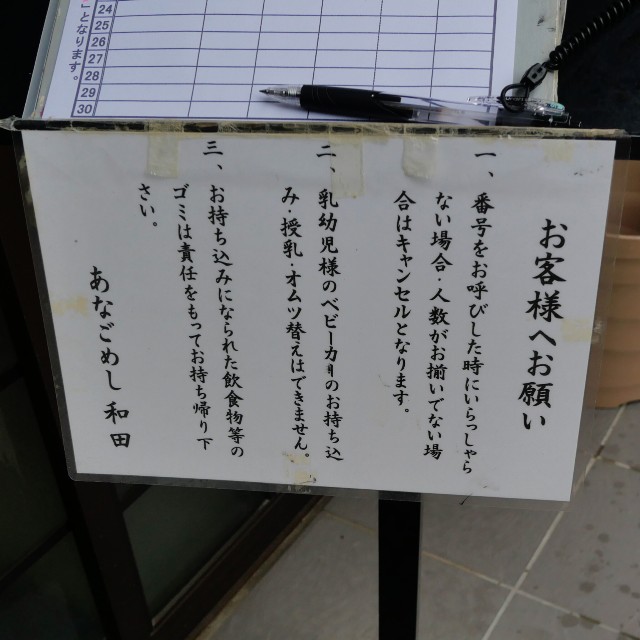 となります。
24
25
26
27
28
29
30
お客様へお願い
一、番号をお呼びした時にいらっしゃら
ない場合・人数がお揃いでない場
合はキャンセルとなります。
二、乳幼児様のベビーカーのお持ち込
み・授乳・オムツ替えはできません。
三、お持ち込みになられた飲食物等の
ゴミは責任をもってお持ち帰り下
さい。
あなごめし 和田